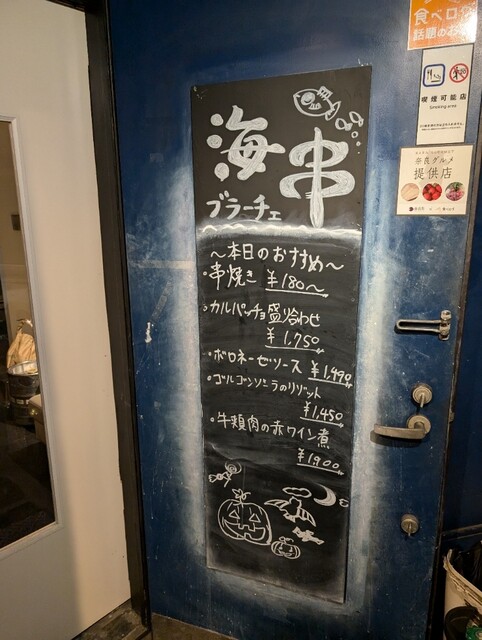 海串
ブラーチェ
～本日のおすすめ～
・串焼き ¥180～
・カルパッチョ盛り合わせ
¥1,750
・ボロネーゼソース ¥1,490
・ゴルゴンゾーラのリゾット
¥1,450
・牛頬肉の赤ワイン煮
¥1,900
食べログ
話題のお
喫煙可能店
Smoking area
奈良グルメ
提供店